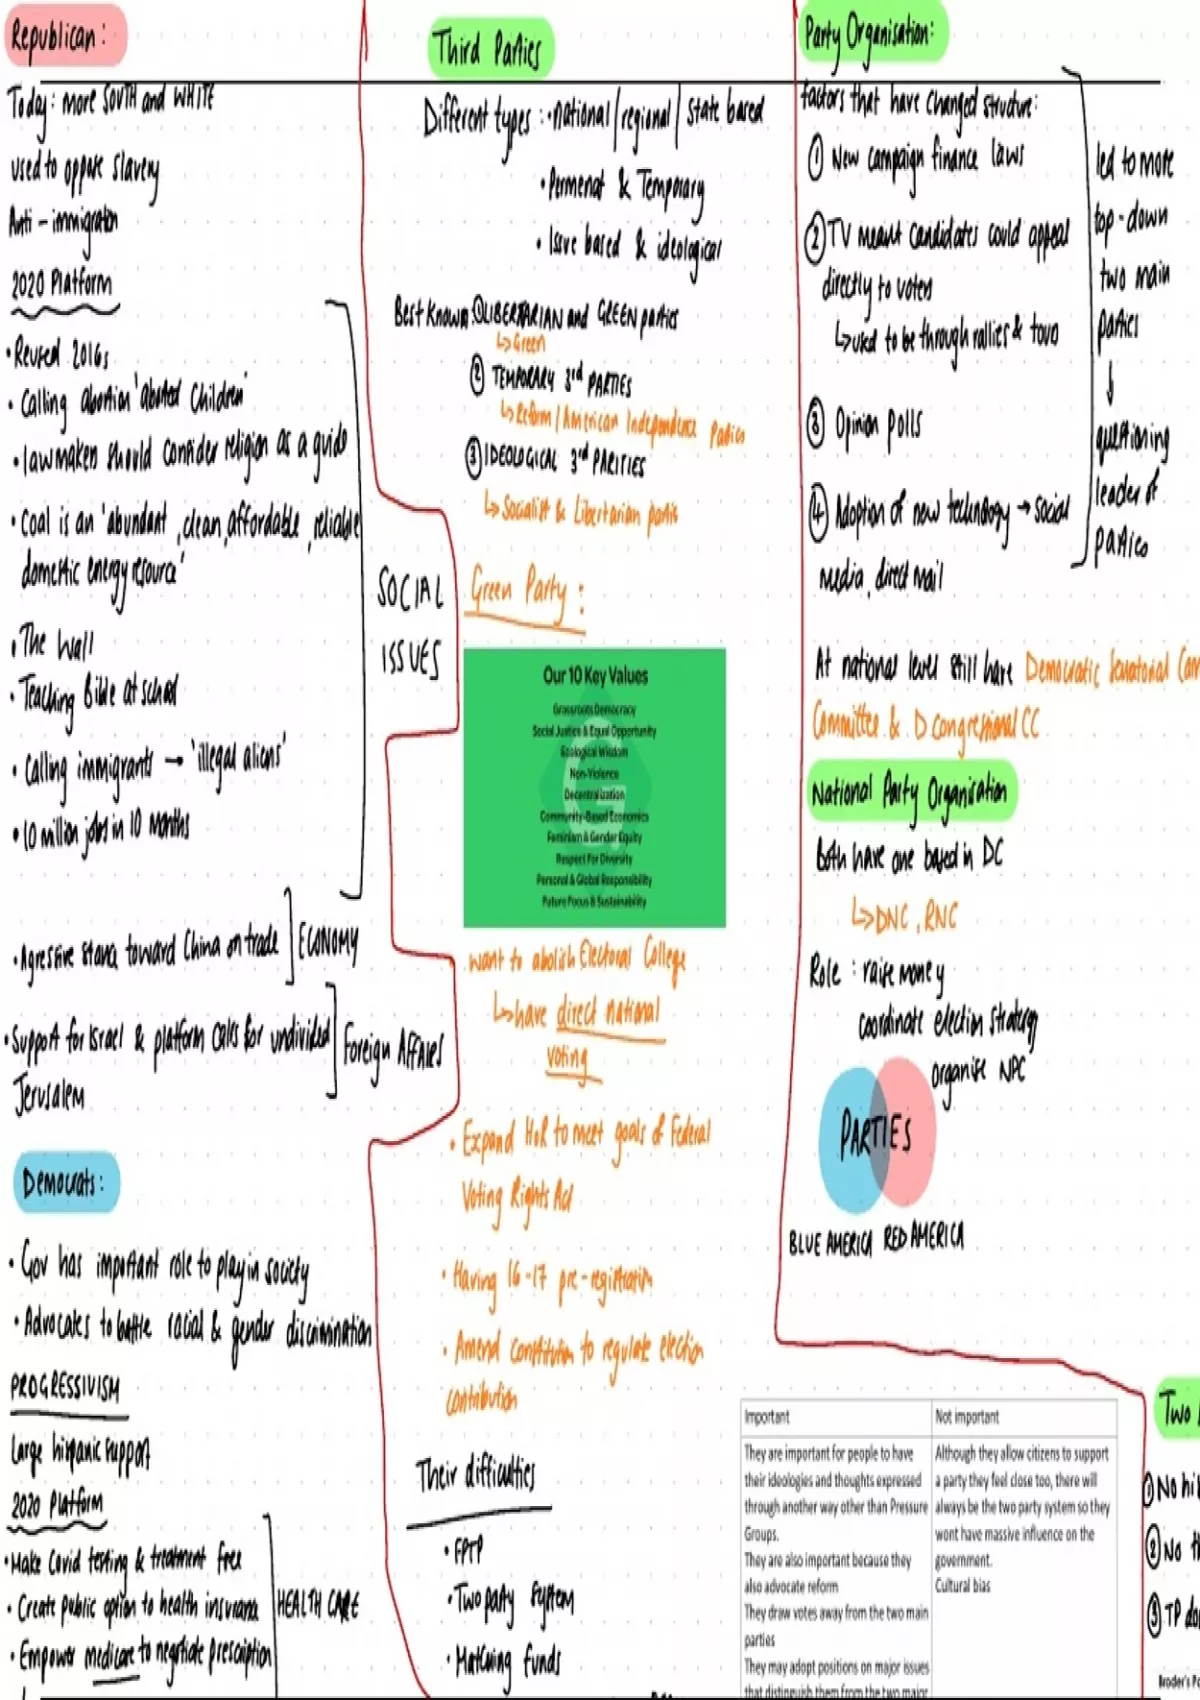 Republican:
Today: more SOUTH and WHITE
used to oppose slavery
Anti-immigration
2020 Platform
• Reused 2016s
• Calling abortion 'aborted children'
• lawmakers should consider religion as a guide
• Coal is an 'abundant, clean, affordable, reliable
domestic energy resource'
• The Wall
• Teaching Bible at school
• Calling immigrants → 'illegal aliens'
• 10 million jobs in 10 months
SOCIAL
ISSUES
• Agressive stance toward China on trade
ECONOMY
• Support for Israel & platform calls for undivided
Jerusalem
Foreign Affaires
Democrats:
• Gov has important role to play in society
• Advocates to battle racial & gender discrimination
PROGRESSIVISM
Large hispanic support
2020 Platform
• Make Covid testing & treatment free
• Create public option to health insurance
• Empower medicare to negotiate prescription
HEALTH CARE
Third Parties
Different types: • national/regional/state based
• Permenat & Temporary
• Issue based & ideological
Best known: ① LIBERTARIAN and GREEN parties
↳ Green
② TEMPORARY 3rd PARTIES
↳ Reform/American Independence Parties
③ IDEOLOGICAL 3rd PARITIES
↳ Socialist & Libertarian partis
Green Party:
Our 10 Key Values
Grassroots Democracy
Social Justice & Equal Opportunity
Ecological Wisdom
Non-Violence
Decentralization
Community-Based Economics
Feminism & Gender Equity
Respect For Diversity
Personal & Global Responsibility
Future Focus & Sustainability
want to abolish Electoral College
↳ have direct national
voting
• Expand HoR to meet goals of Federal
Voting Rights Act
• Having 16-17 pre-registration
• Amend constitution to regulate election
contribution
Their difficulties
• FPTP
• Two party system
• Matching funds
Party Organisation:
factors that have changed structure:
① New campaign finance laws
② TV meant candidates could appeal
directly to voters
↳ used to be through rallies & tovo
③ Opinion polls
④ Adoption of new technology → social
media, direct mail
led to more
top-down
two main
parties
↓
questioning
leader of
parties
At national level still have Democratic Senatorial Cam
Committee & D congressional CC
National Party Organisation
Both have one based in DC
↳ DNC, RNC
Role: raise money
coordinate election strategy
organise NPC
PARTIES
BLUE AMERICA RED AMERICA
Important
They are important for people to have
their ideologies and thoughts expressed
through another way other than Pressure
Groups.
They are also important because they
also advocate reform
They draw votes away from the two main
parties
They may adopt positions on major issues
that distinguish them from the two major
Not important
Although they allow citizens to support
a party they feel close too, there will
always be the two party system so they
wont have massive influence on the
government.
Cultural bias
Two
① No hi
② No th
③ TP do
Broder's